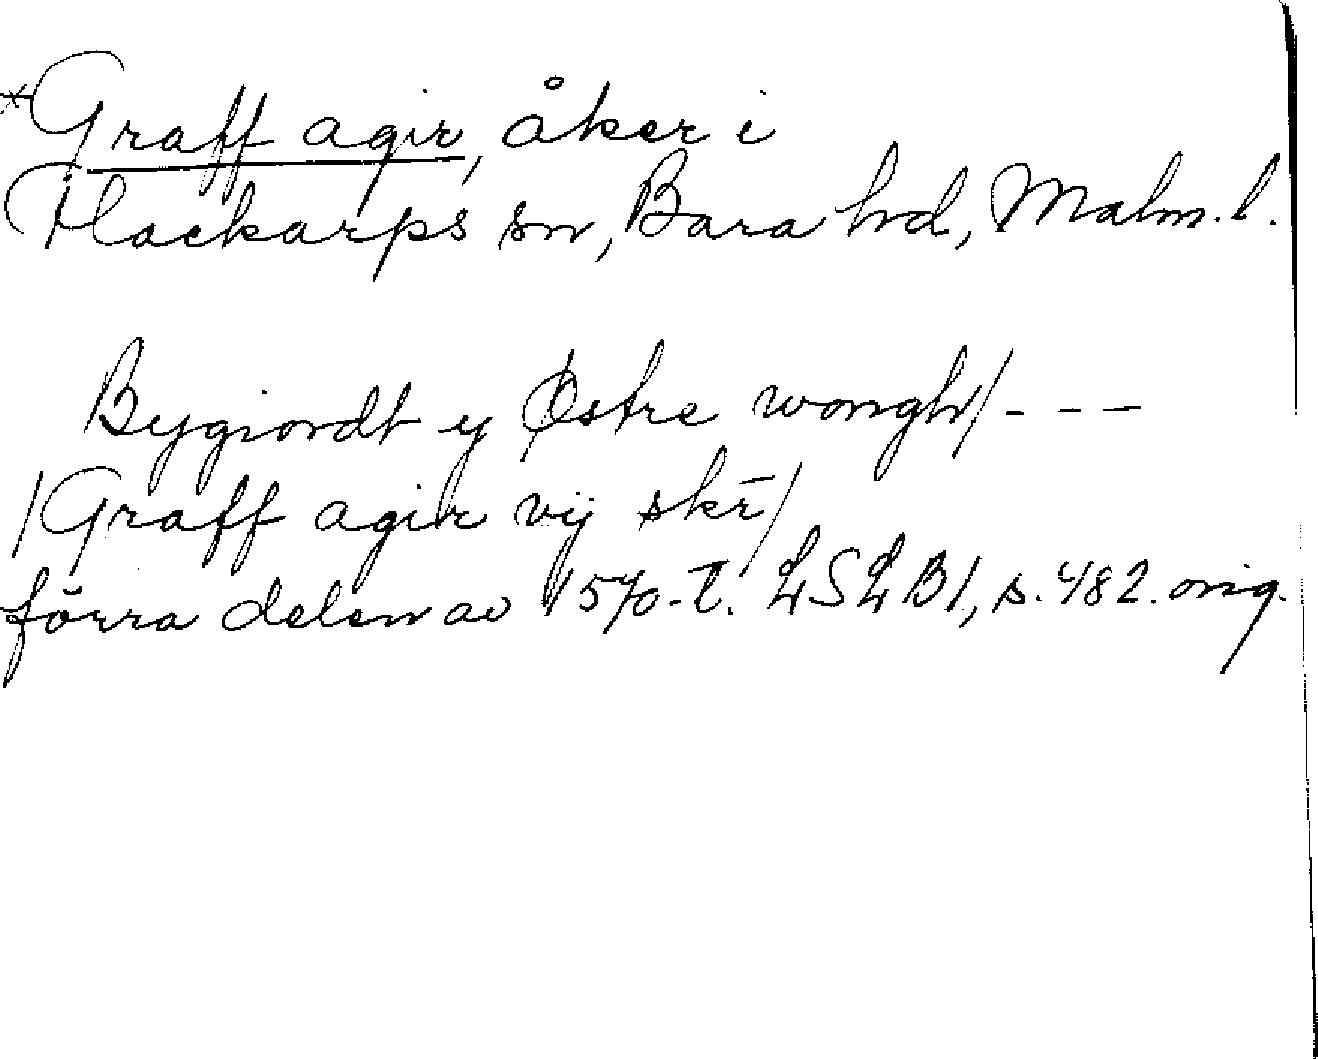 *Graff agir, åker i
Flackarps sn, Bara hd, Malm. l.
Bygiordt y Østre wongh/ - - -
/Graff agir vij skr̄/
förra delen av 1570-t. LSLB1, s. 482. orig.